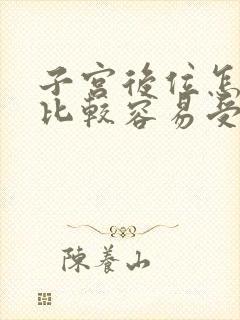 子宮後位怎
比較容易受
陳養山